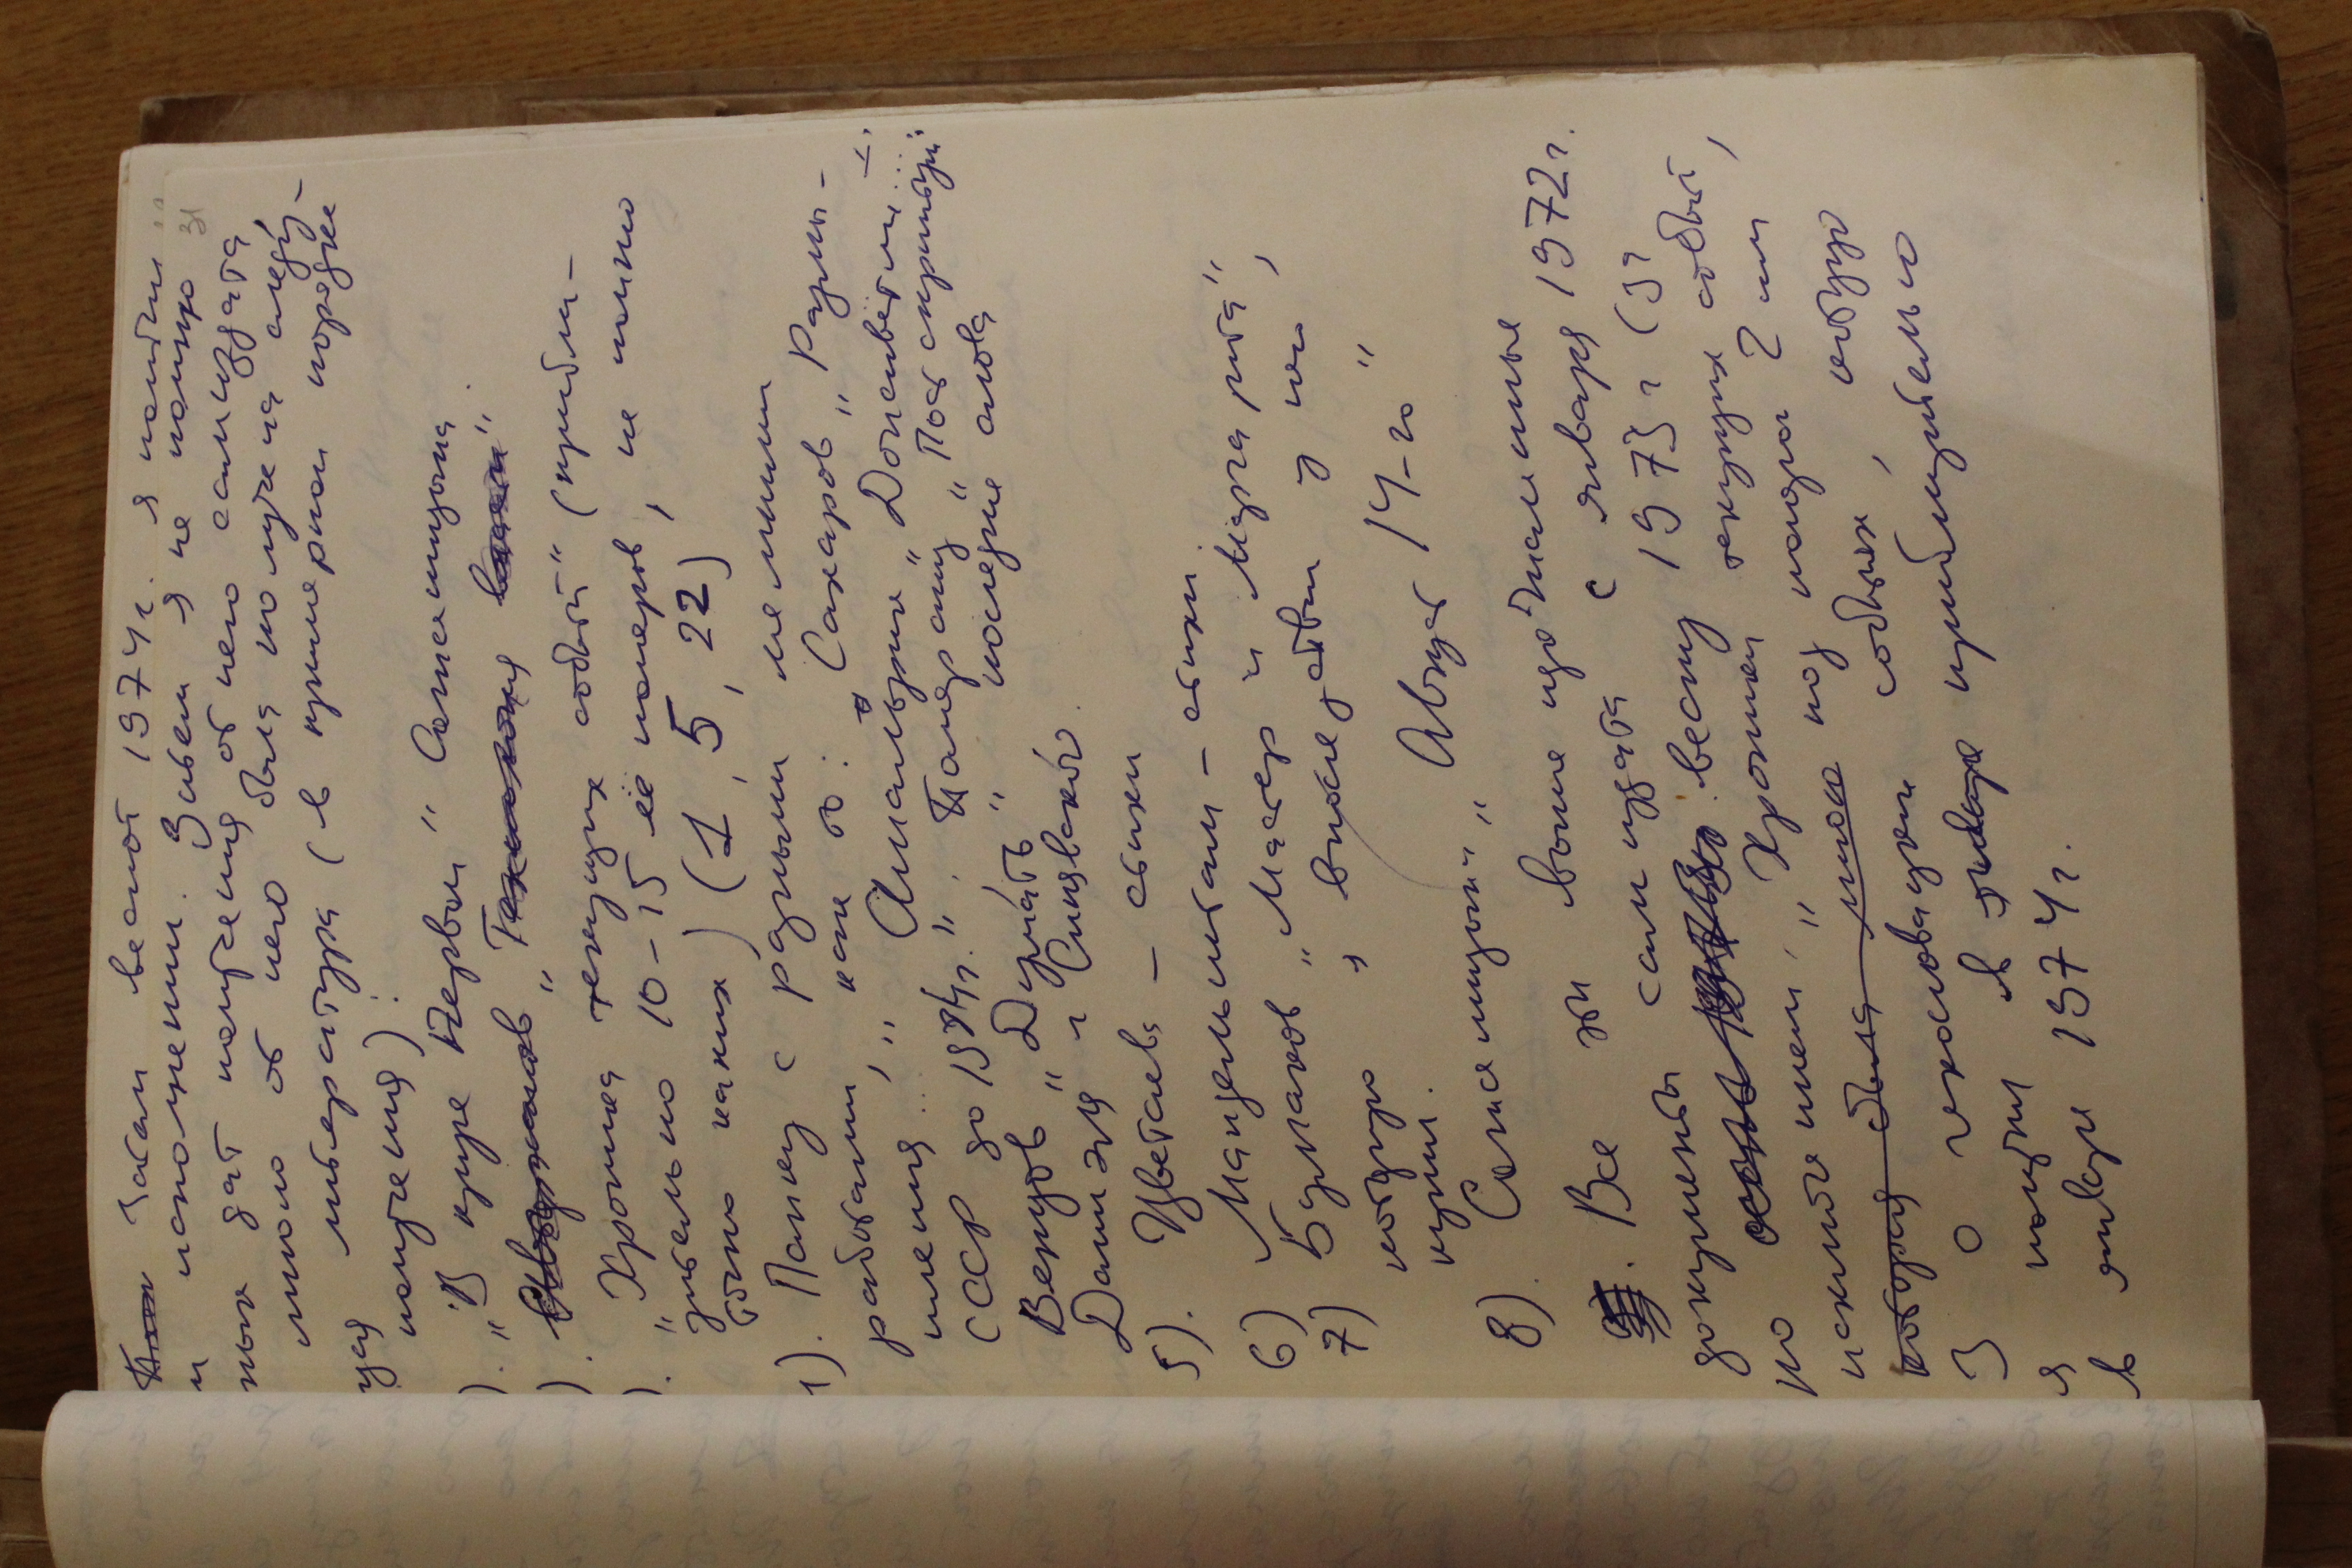 Затем весной 1974 г. я получил
и исполнении. Затем я не помню 31
ных дат получения от него самиздата,
много от него была получена следу-
щая литература (в примерном порядке
получения):
). „В круге Первом" Солженицына.
). Авторханов „Технология власти"
). „Хроника текущих событий" (прибли-
зительно 10-15 её номеров, не помню
точно каких) (1, 5, 22)
). Папку с разными мелкими
работами, как то: Сахаров „Размы-
шления...", Амальрик „Доживёт ли...
СССР до 1984 г.", Померанц „Пост скриптум"
Венцов „Думать", последние слова
Даниэля и Синявского.
5). Цветаева – стихи
6) Мандельштам – стихи.
7) Булгаков „Мастер и Маргарита",
которую я впоследствии у него
купил.
8). Солженицын „Август 14-го"
. Все эти выше
документы самиздата с января 1972 г.
по осень весну 1973 г (за
исключением „Хроники текущих событий,
которая была много под номером 2 или
3 о чехословацких событиях, которую
я получил в январе приблизительно
в январе 1974 г.